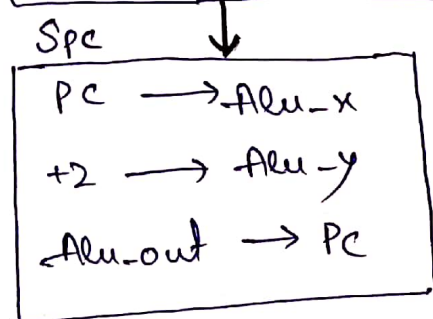 Spc
PC → Alu_x
+2 → Alu_y
Alu_out → PC